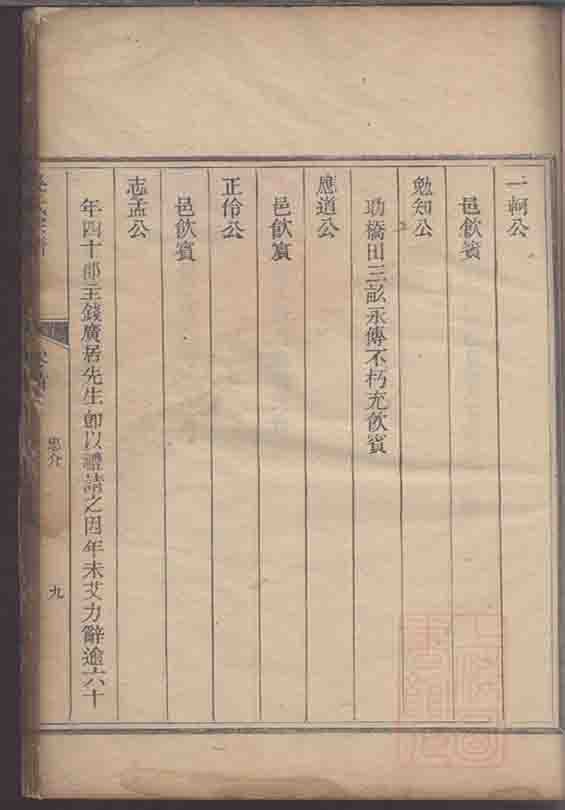 一軻公
邑飲賓
勉知公
助橋田三畝永傳不朽充飲賓
應道公
邑飲賓
正伶公
邑飲賓
志孟公
年四十郡主錢廣居先生卽以禮請之因年未艾力辭逾六十
九